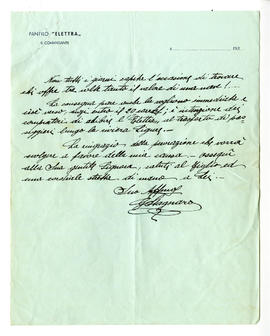 PANFILO "ELETTRA"
IL COMANDANTE
193
Non tutti i giorni capita l'occasione di trovare
chi offre tre volte tanto il valore di una nave! ...
La consegna pare anche la vogliono immediata e
cioè verso oggi entro il 20 corr., è intenzione dei
compratori di adibire l'Elettra al trasporto di pas-
seggeri lungo la riviera Ligure.
La ringrazio della che vorrà
svolgere a favore della mia causa ossequi
alla Sua gentile Signora saluti al figlio ed
una cordiale stretta di mano a Lei
Suo Affmo